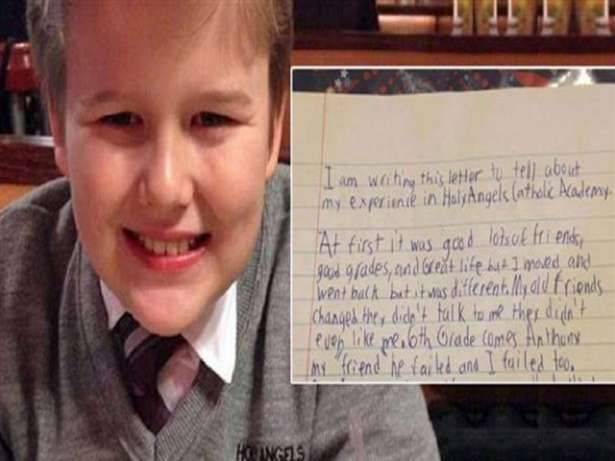 I am writing this letter to tell about
my experience in Holy Angels Catholic Academy.
At first it was good lots of friends,
good grades, and Great life but I moved and
went back but it was different. My old friends
changed they didn't talk to me they didn't
even like me. 6th Grade comes Anthony
my friend he failed and I failed too.
HOLY ANGELS